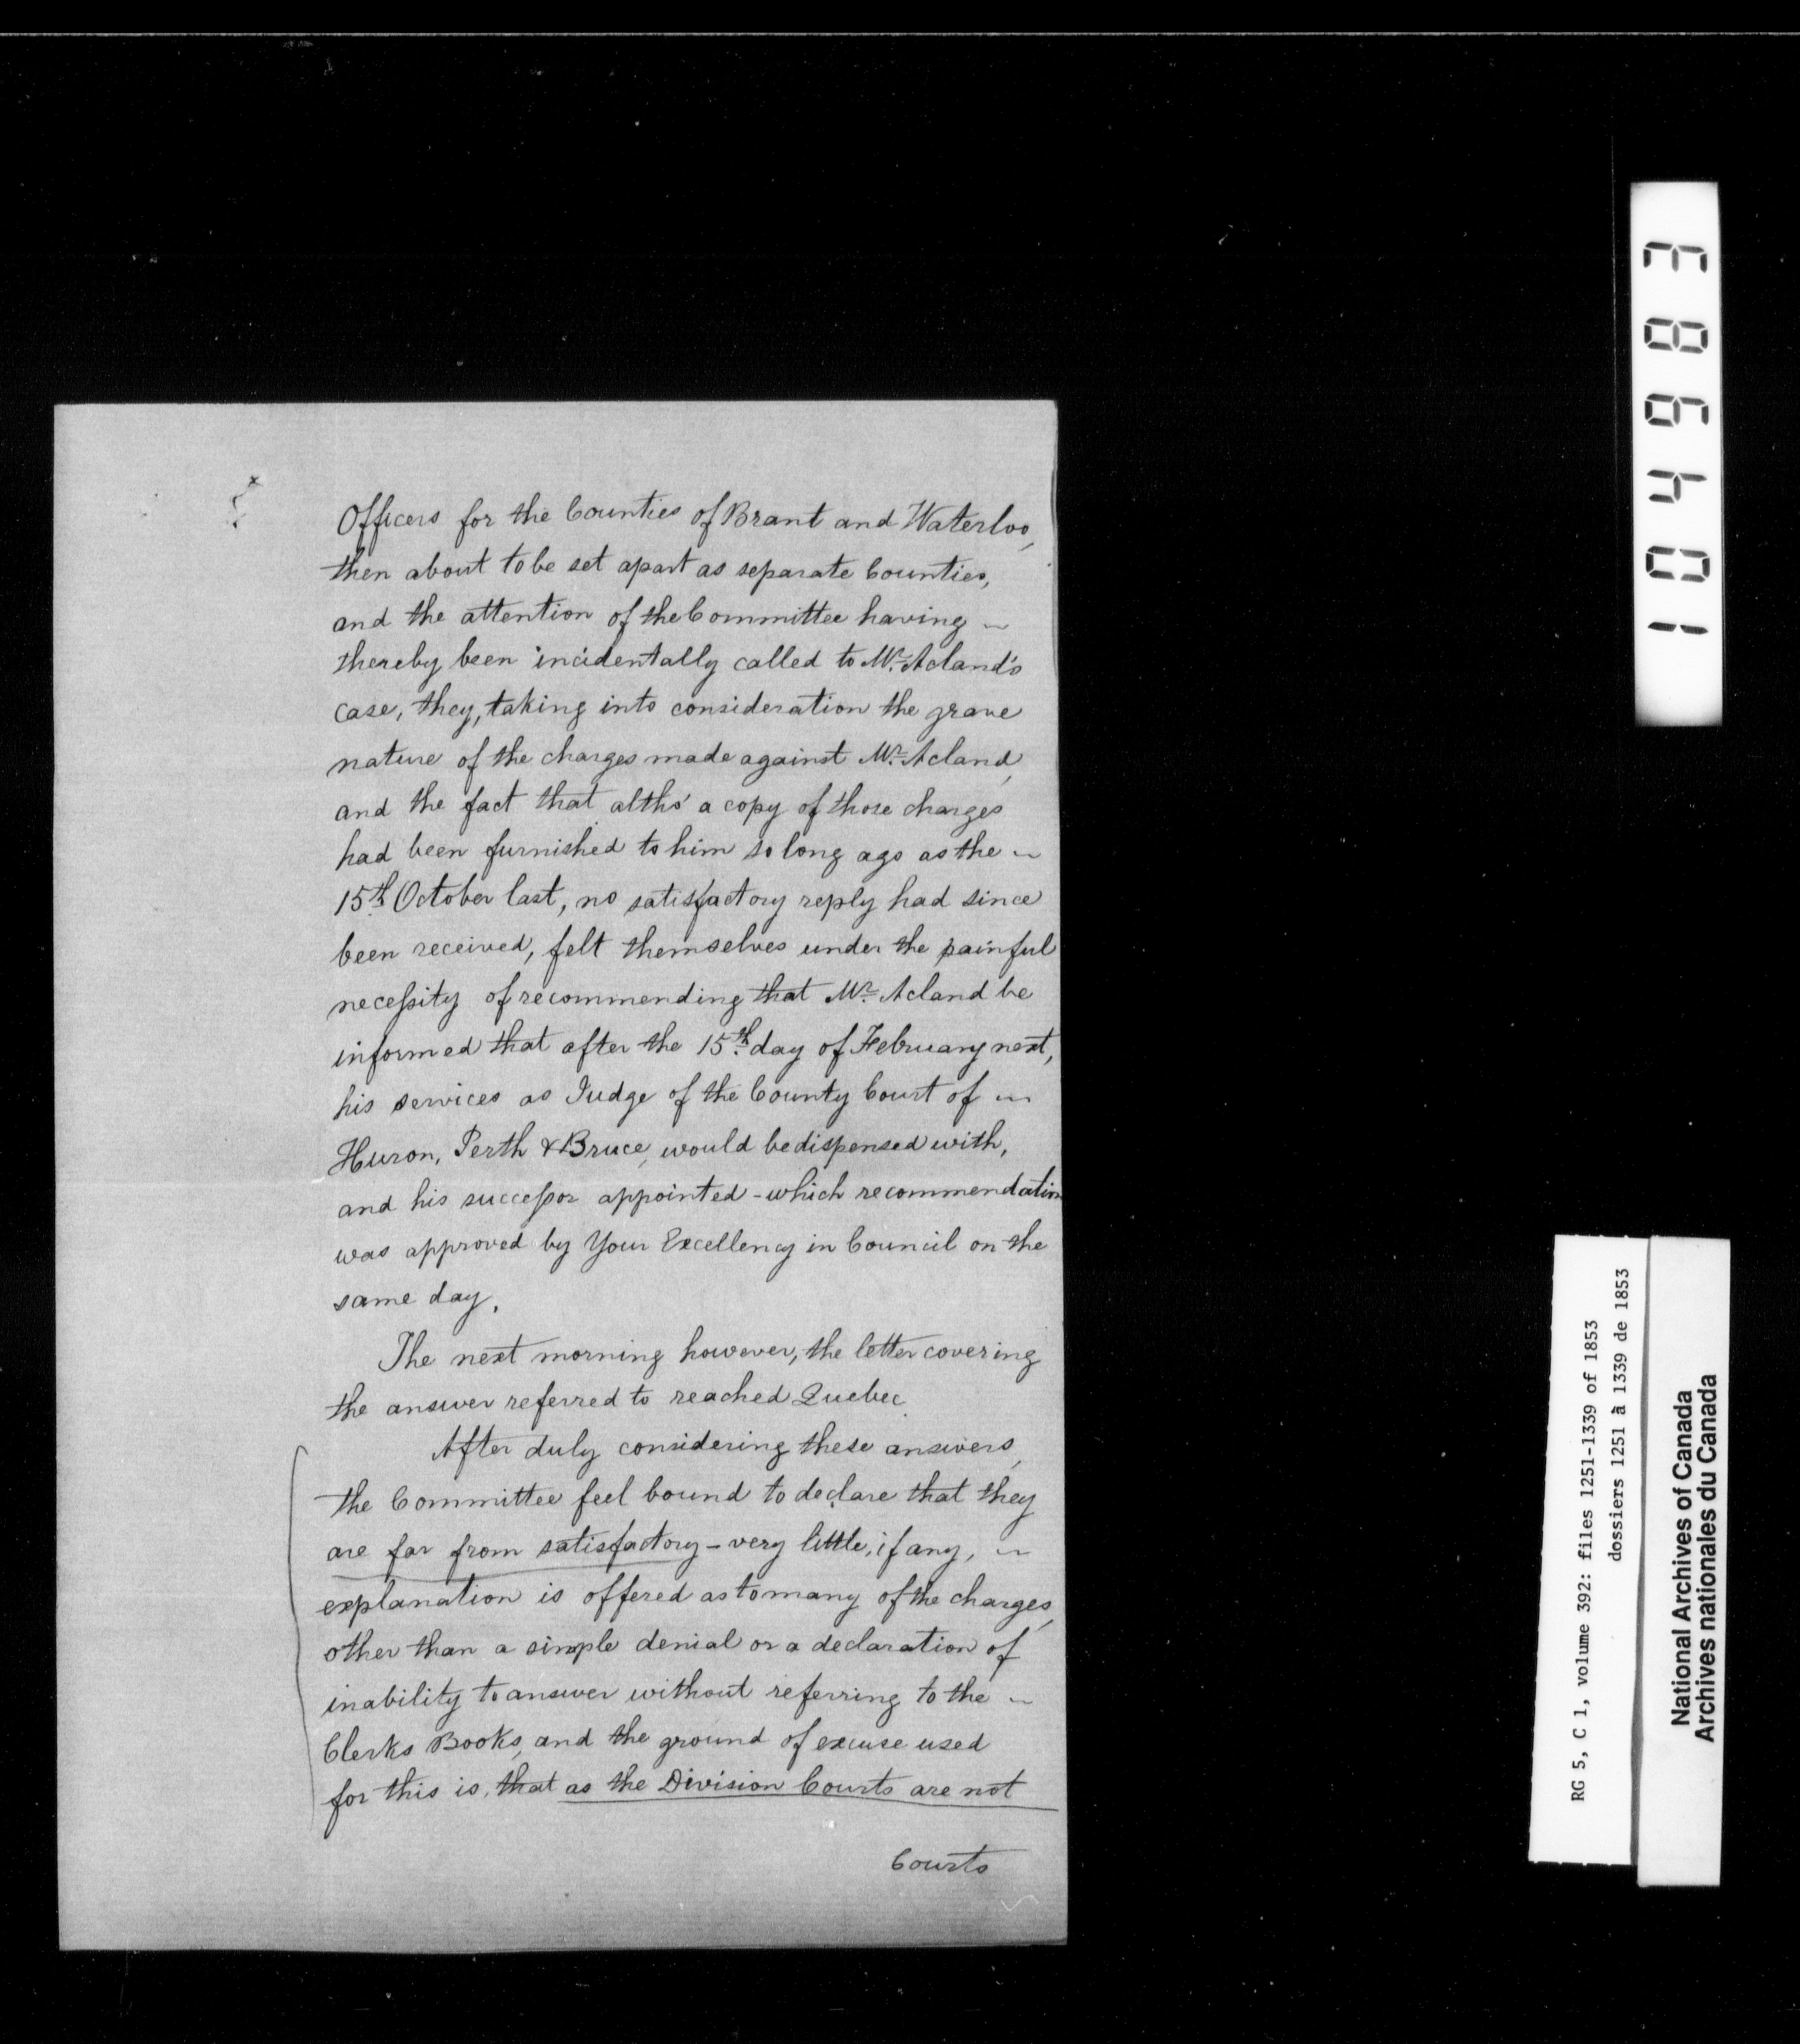 Officers for the Counties of Brant and Waterloo,
then about to be set apart as separate Counties,
and the attention of the Committee having ~
thereby been incidentally called to Mr. Acland's
case, they, taking into consideration the grave
nature of the charges made against Mr. Acland,
and the fact that altho' a copy of those charges
had been furnished to him so long ago as the ~
15th October last, no satisfactory reply had since
been received, felt themselves under the painful
necessity of recommending that Mr. Acland be
informed that after the 15th day of February next,
his services as Judge of the County Court of ~
Huron, Perth & Bruce, would be dispensed with,
and his successor appointed - which recommendation
was approved by Your Excellency in Council on the
same day.
The next morning however, the letter covering
the answer referred to reached Quebec.
After duly considering these answers,
the Committee feel bound to declare that they
are far from satisfactory - very little, if any, ~
explanation is offered as to many of the charges,
other than a simple denial or a declaration of
inability to answer without referring to the ~
Clerks Books, and the ground of excuse used
for this is, that as the Division Courts are not
Courts
104983
RG 5, C 1, volume 392: files 1251-1339 of 1853
dossiers 1251 à 1339 de 1853
National Archives of Canada
Archives nationales du Canada